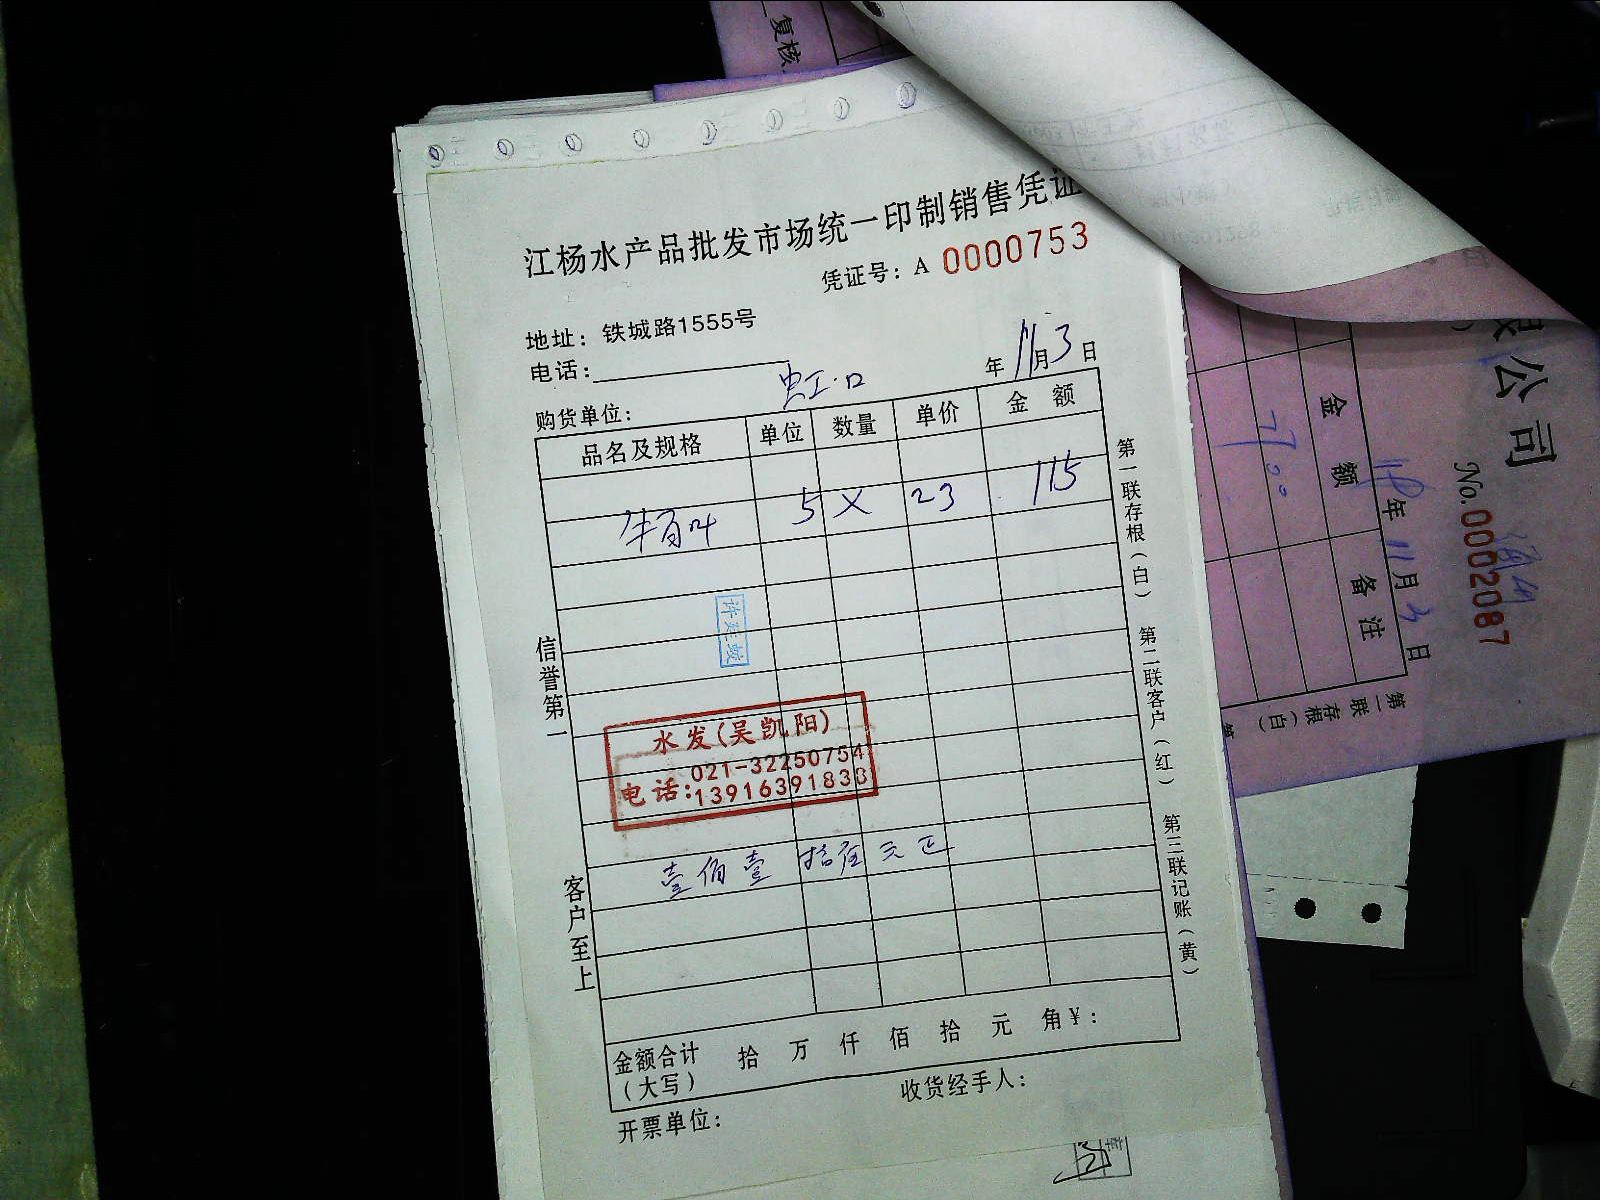 江杨水产品批发市场统一印制销售凭证
凭证号: A 0000753
地址: 铁城路1555号
电话:
年 11月 3日
购货单位: 虹口
品名及规格 单位 数量 单价 金 额
牛百叶 5 X 23 115
水发(吴凯阳)
021-32250754
电话:13916391838
壹佰壹拾伍元正
金额合计
(大写) 拾 万 仟 佰 拾 元 角¥:
开票单位: 收货经手人:
信誉第一
客户至上
第一联存根(白) 第二联客户(红) 第三联记账(黄)
复核
公司
No.0002087
年 11月 3日
金 额 备 注
第一联 存根(白)